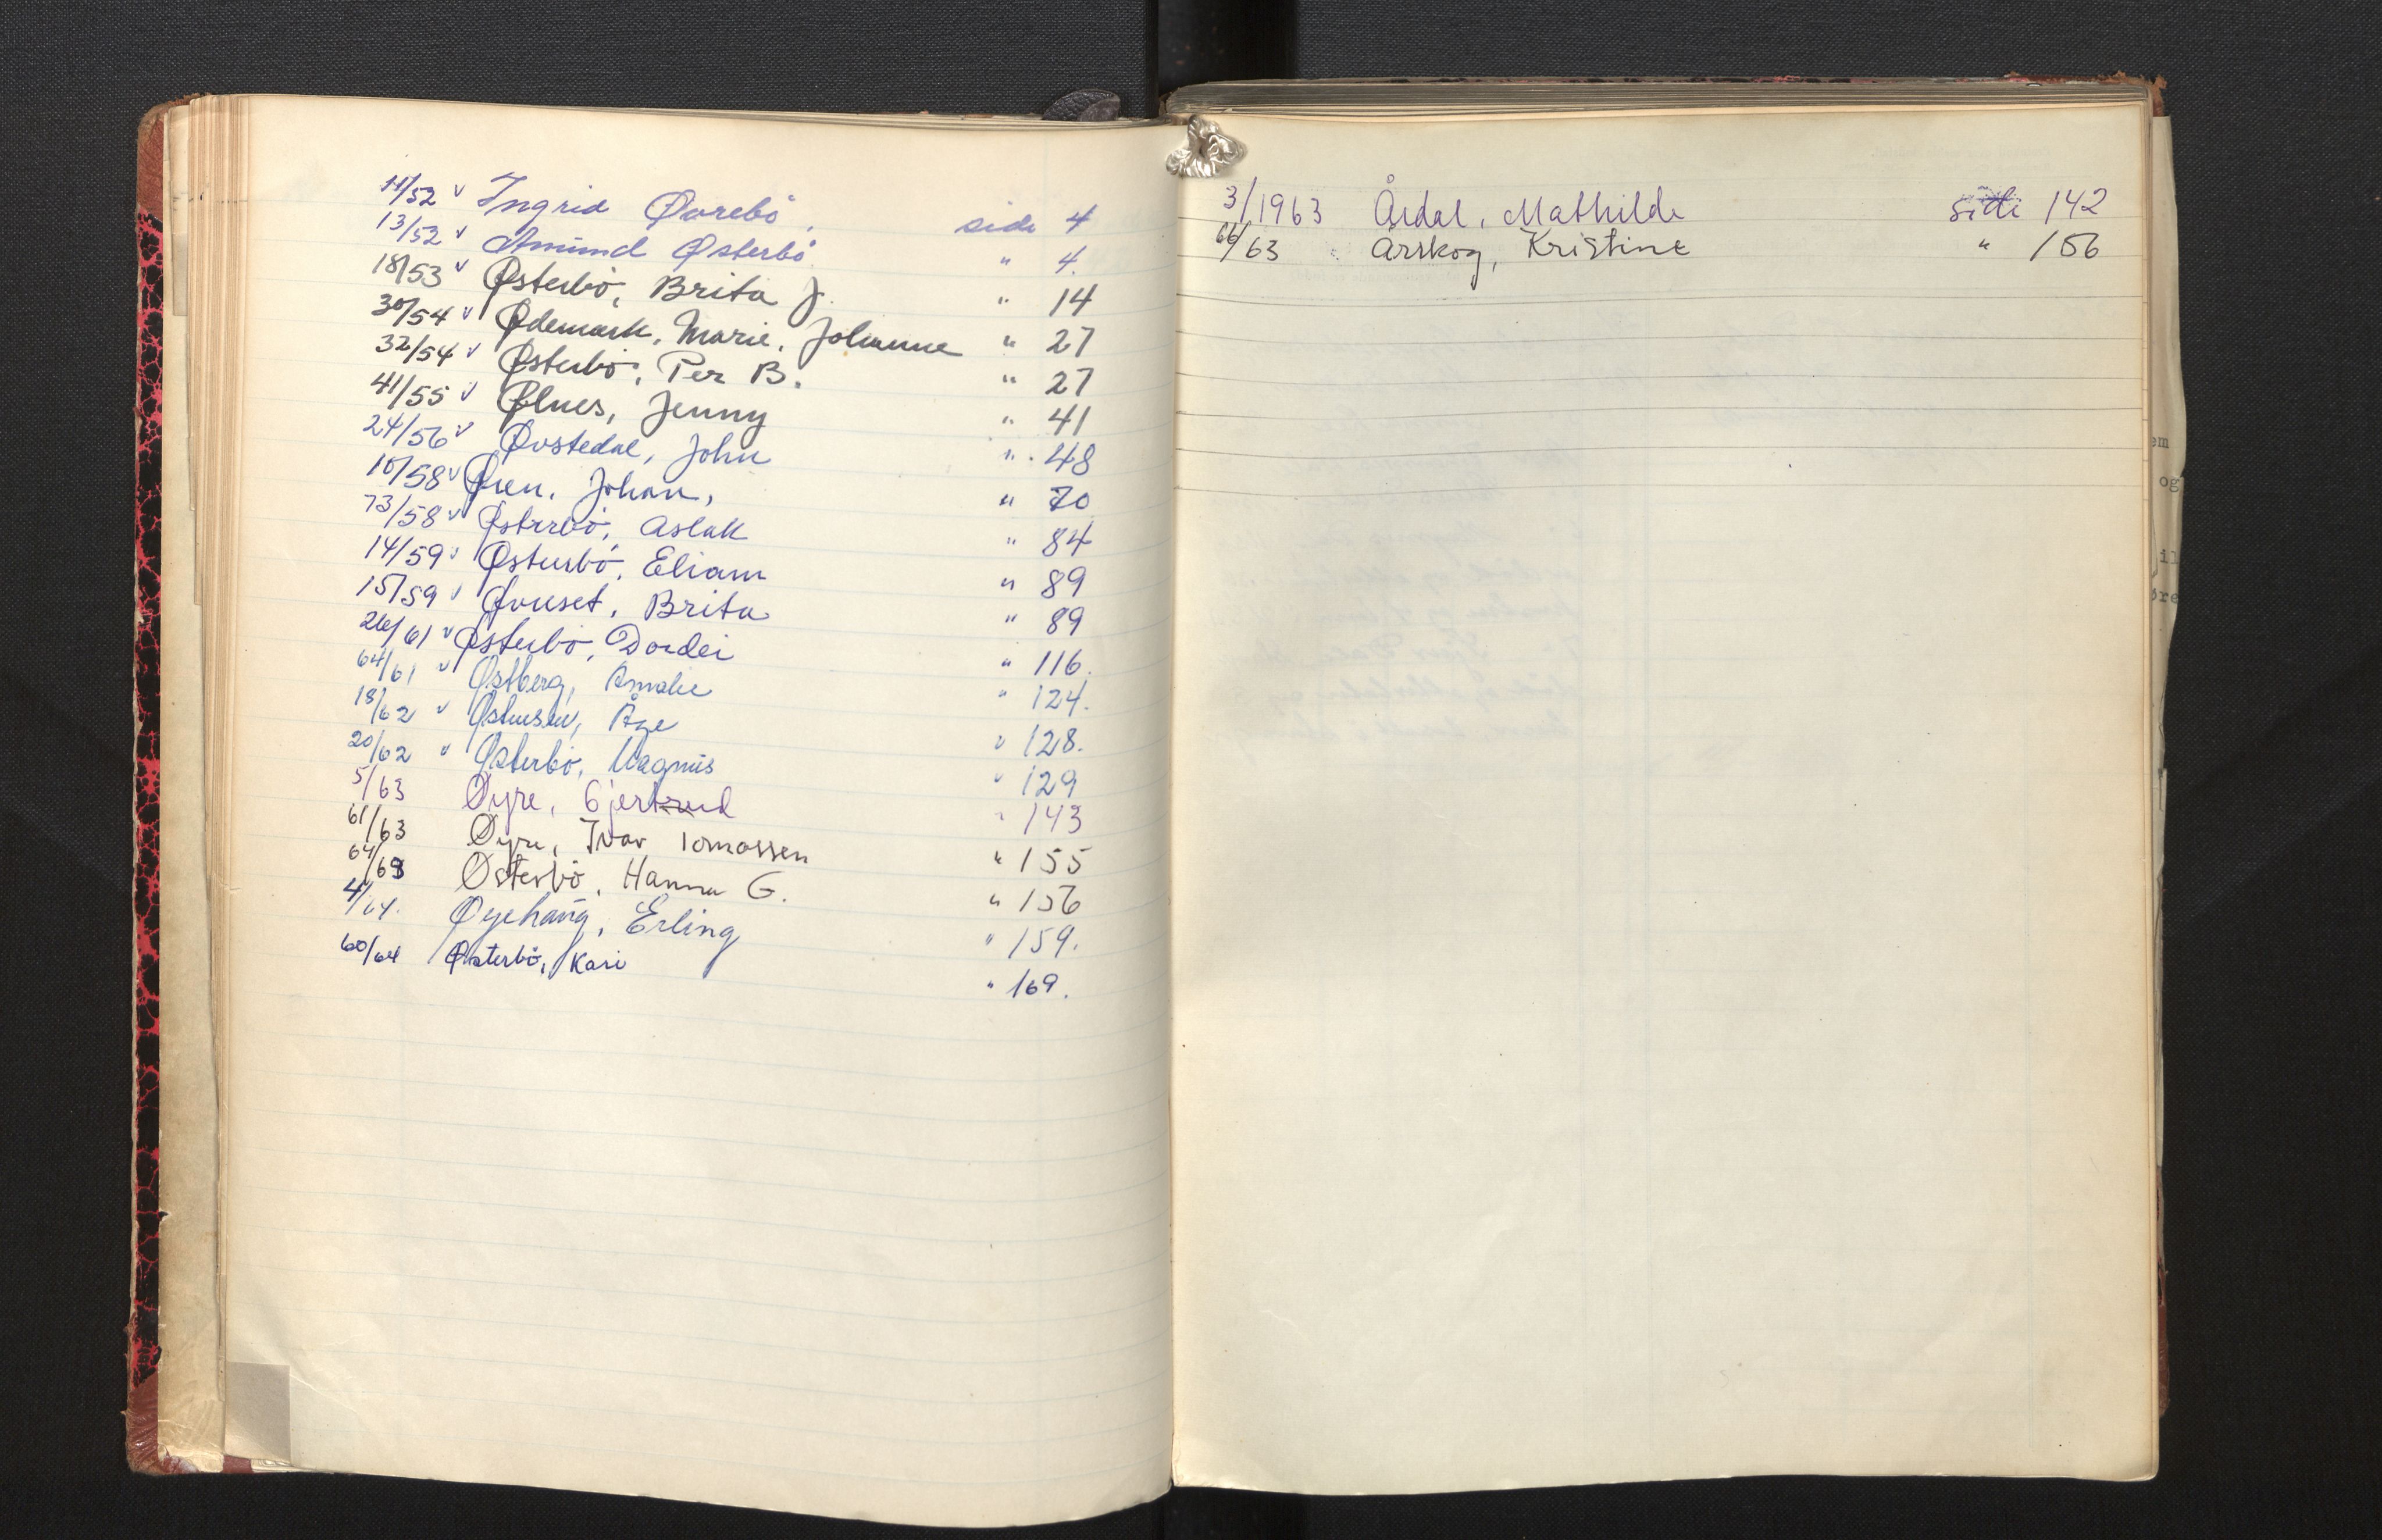 11/52 v Ingrid Øvrebö, side 4
13/52 v Amund Østerbö " 4.
18/53 v Østerbö, Brita J. " 14
30/54 v Ødemark, Marie, Johanne " 27
32/54 v Østerbö, Per B. " 27
41/55 v Ølnes, Jenny " 41
24/56 v Øvstedal, John " 48
10/58 v Øren, Johan, " 70
73/58 v Østerbö, Aslak " 84
14/59 v Østerbö, Eliam " 89
15/59 v Øvreset, Brita " 89
26/61 v Østerbö, Dordei " 116.
64/61 v Østberg, Amalie " 124.
18/62 v Østensen, Åge " 128.
20/62 v Østerbö, Magnus " 129
5/63 Øyre, Gjertrud " 143
61/63 Øyre, Ivar Tomassen " 155
64/63 Østerbö, Hanna G. " 156
4/64. Øyehaug, Erling " 159.
60/64 Østerbö, Kari " 169.
3/1963 Årdal, Mathilde side 142
66/63 Årskog, Kristine " 156
em
og
il
øre